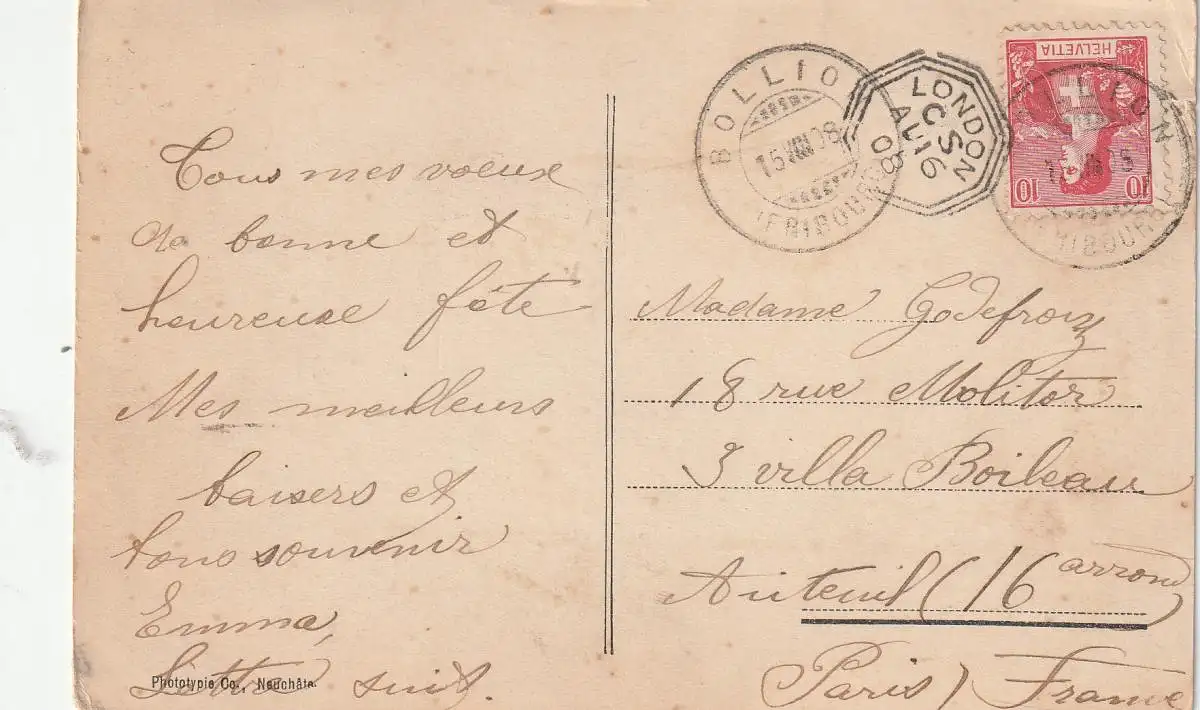 Tous mes voeux
de bonne et
heureuse fête
Mes meilleurs
baisers et
bons souvenir
Emma,
Lettre suit.
Phototypie Co., Neuchâtel
BOLLION
15 VIII 08
(FRIBOURG)
LONDON
C S
AU 16
08
HELVETIA
10 10
BOLLION
15 VIII 08
(FRIBOURG)
Madame Godefroy
18 rue Molitor
3 villa Boileau
Auteuil (16 arrond)
Paris) France